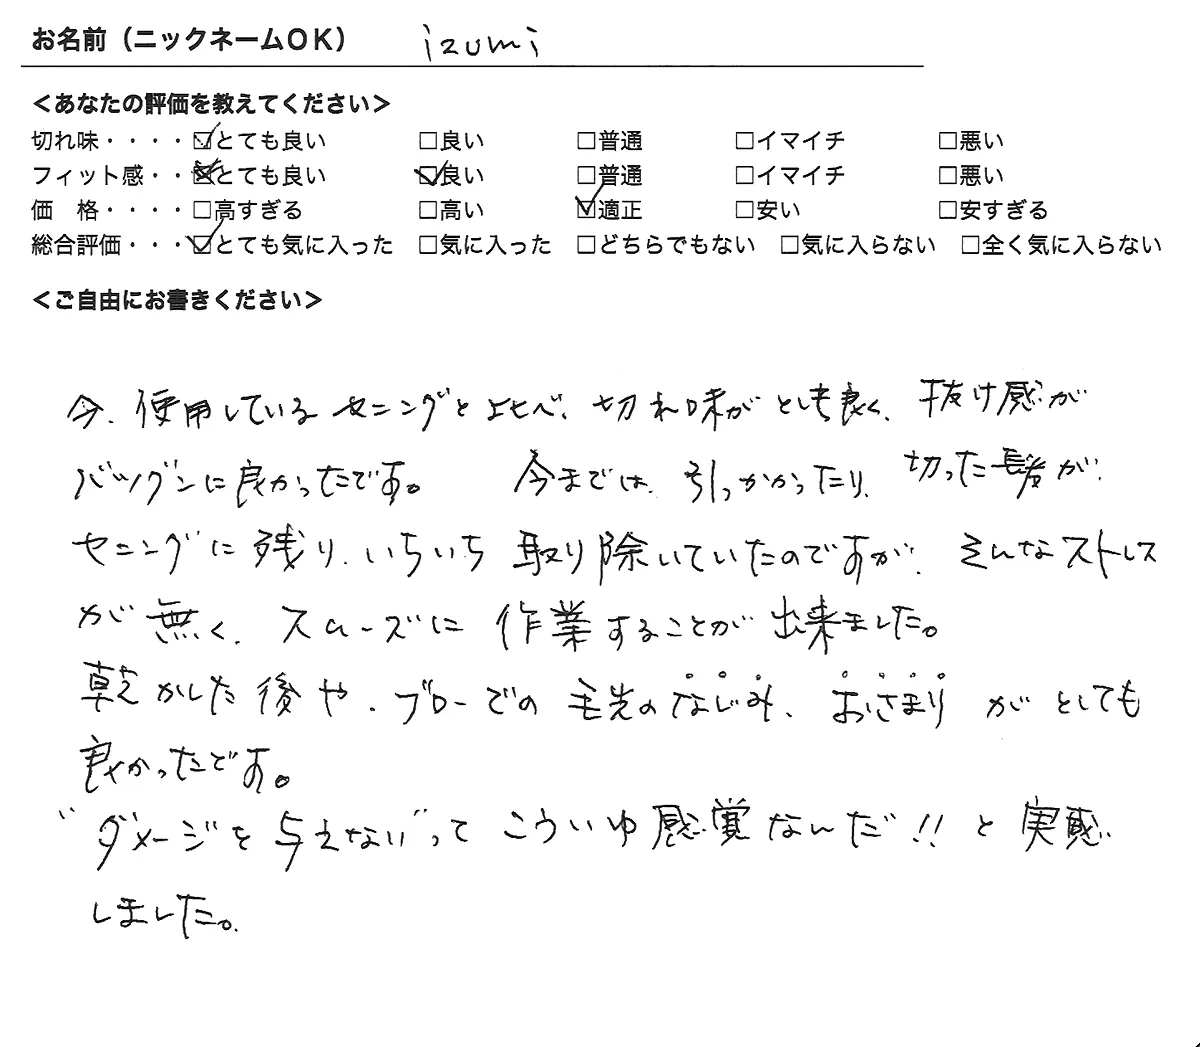 お名前（ニックネームＯＫ） izumi
＜あなたの評価を教えてください＞
切れ味・・・・☑とても良い □良い □普通 □イマイチ □悪い
フィット感・・☒とても良い ☑良い □普通 □イマイチ □悪い
価　格・・・・□高すぎる □高い ☑適正 □安い □安すぎる
総合評価・・・☑とても気に入った □気に入った □どちらでもない □気に入らない □全く気に入らない
＜ご自由にお書きください＞
今、使用しているセニングと比べ、切れ味がとても良く、抜け感が
バツグンに良かったです。 今までは、引っかかったり、切った髪が、
セニングに残り、いちいち取り除いていたのですが、そんなストレス
が無く、スムーズに作業することが出来ました。
乾かした後や、ブローでの毛先のなじみ、おさまりがとしても
良かったです。
"ダメージを与えない"って こういゆ感覚なんだ!! と実感
しました。